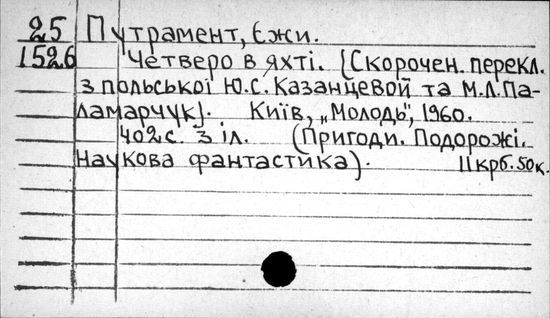 25 Путрамент, Єжи.
1526 Четверо в яхті. [Скорочен. перекл.
з польської Ю.С. Казанцевой та М.Л. Па-
ламарчук]. Київ, „Молодь", 1960.
402с. З іл. (Пригоди. Подорожі.
Наукова фантастика). 11крб. 50к.